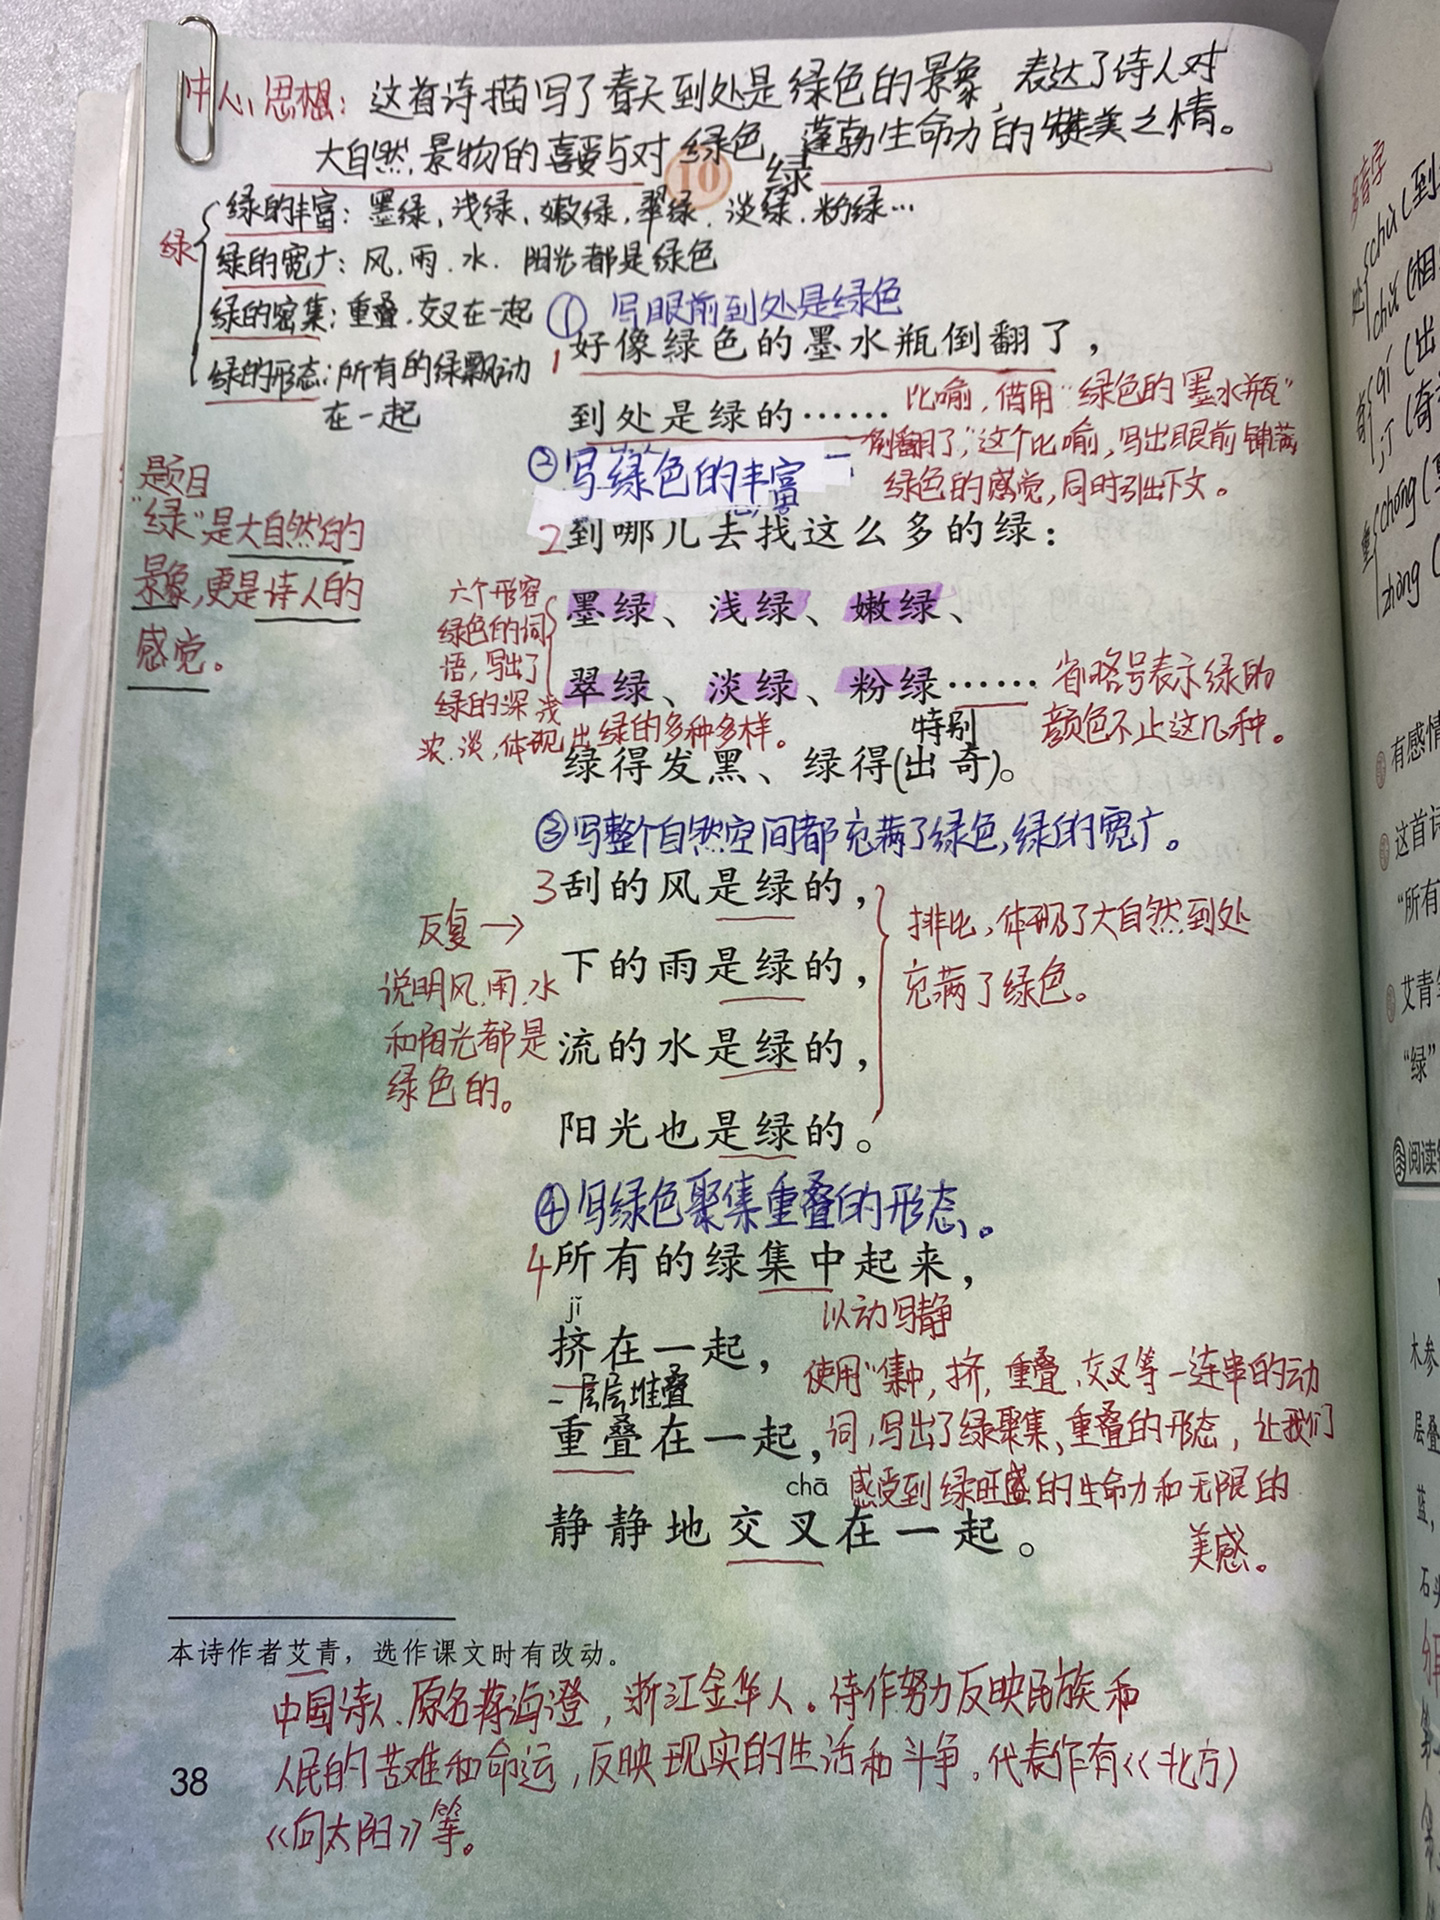 中心思想：这首诗描写了春天到处是绿色的景象，表达了诗人对
大自然景物的喜爱与对绿色，蓬勃生命力的赞美之情。
10 绿
绿
绿的丰富：墨绿，浅绿、嫩绿，翠绿．淡绿．粉绿…
绿的宽广：风．雨．水．阳光都是绿色
绿的密集：重叠．交叉在一起
绿的形态：所有的绿飘动
在一起
① 写眼前到处是绿色
1好像绿色的墨水瓶倒翻了，
到处是绿的……
比喻，借用“绿色的墨水瓶”
倒翻了，”这个比喻，写出眼前铺满
绿色的感觉，同时引出下文。
题目
“绿”是大自然的
景象，更是诗人的
感觉。
②写绿色的丰富
2到哪儿去找这么多的绿：
六个形容
绿色的词
语，写出了
绿的深浅
浓．淡，体现出绿的多种多样。
墨绿、浅绿、嫩绿、
翠绿、淡绿、粉绿……
省略号表示绿的
颜色不止这几种。
特别
绿得发黑、绿得(出奇)。
③写整个自然空间都充满了绿色，绿的宽广。
3刮的风是绿的，
下的雨是绿的，
流的水是绿的，
阳光也是绿的。
反复→
说明风．雨．水
和阳光都是
绿色的。
排比，体现了大自然到处
充满了绿色。
④写绿色聚集重叠的形态。
4所有的绿集中起来，
以动写静
jǐ
挤在一起，
=层层堆叠
重叠在一起，
chā
静静地交叉在一起。
使用“集中，挤，重叠．交叉等一连串的动
词，写出了绿聚集、重叠的形态，让我们
感受到绿旺盛的生命力和无限的
美感。
本诗作者艾青，选作课文时有改动。
中国诗人．原名蒋海澄，浙江金华人。诗作努力反映民族和
人民的苦难和命运，反映现实的生活和斗争。代表作有《北方》
《向太阳》等。
38
多音字
处
chù(到
chǔ(相
奇
qí(出
jī(奇
重
chóng(重
zhòng(
有感情
这首诗
“所有
艾青笔
“绿”
阅读
木参
层叠
蓝，
石头